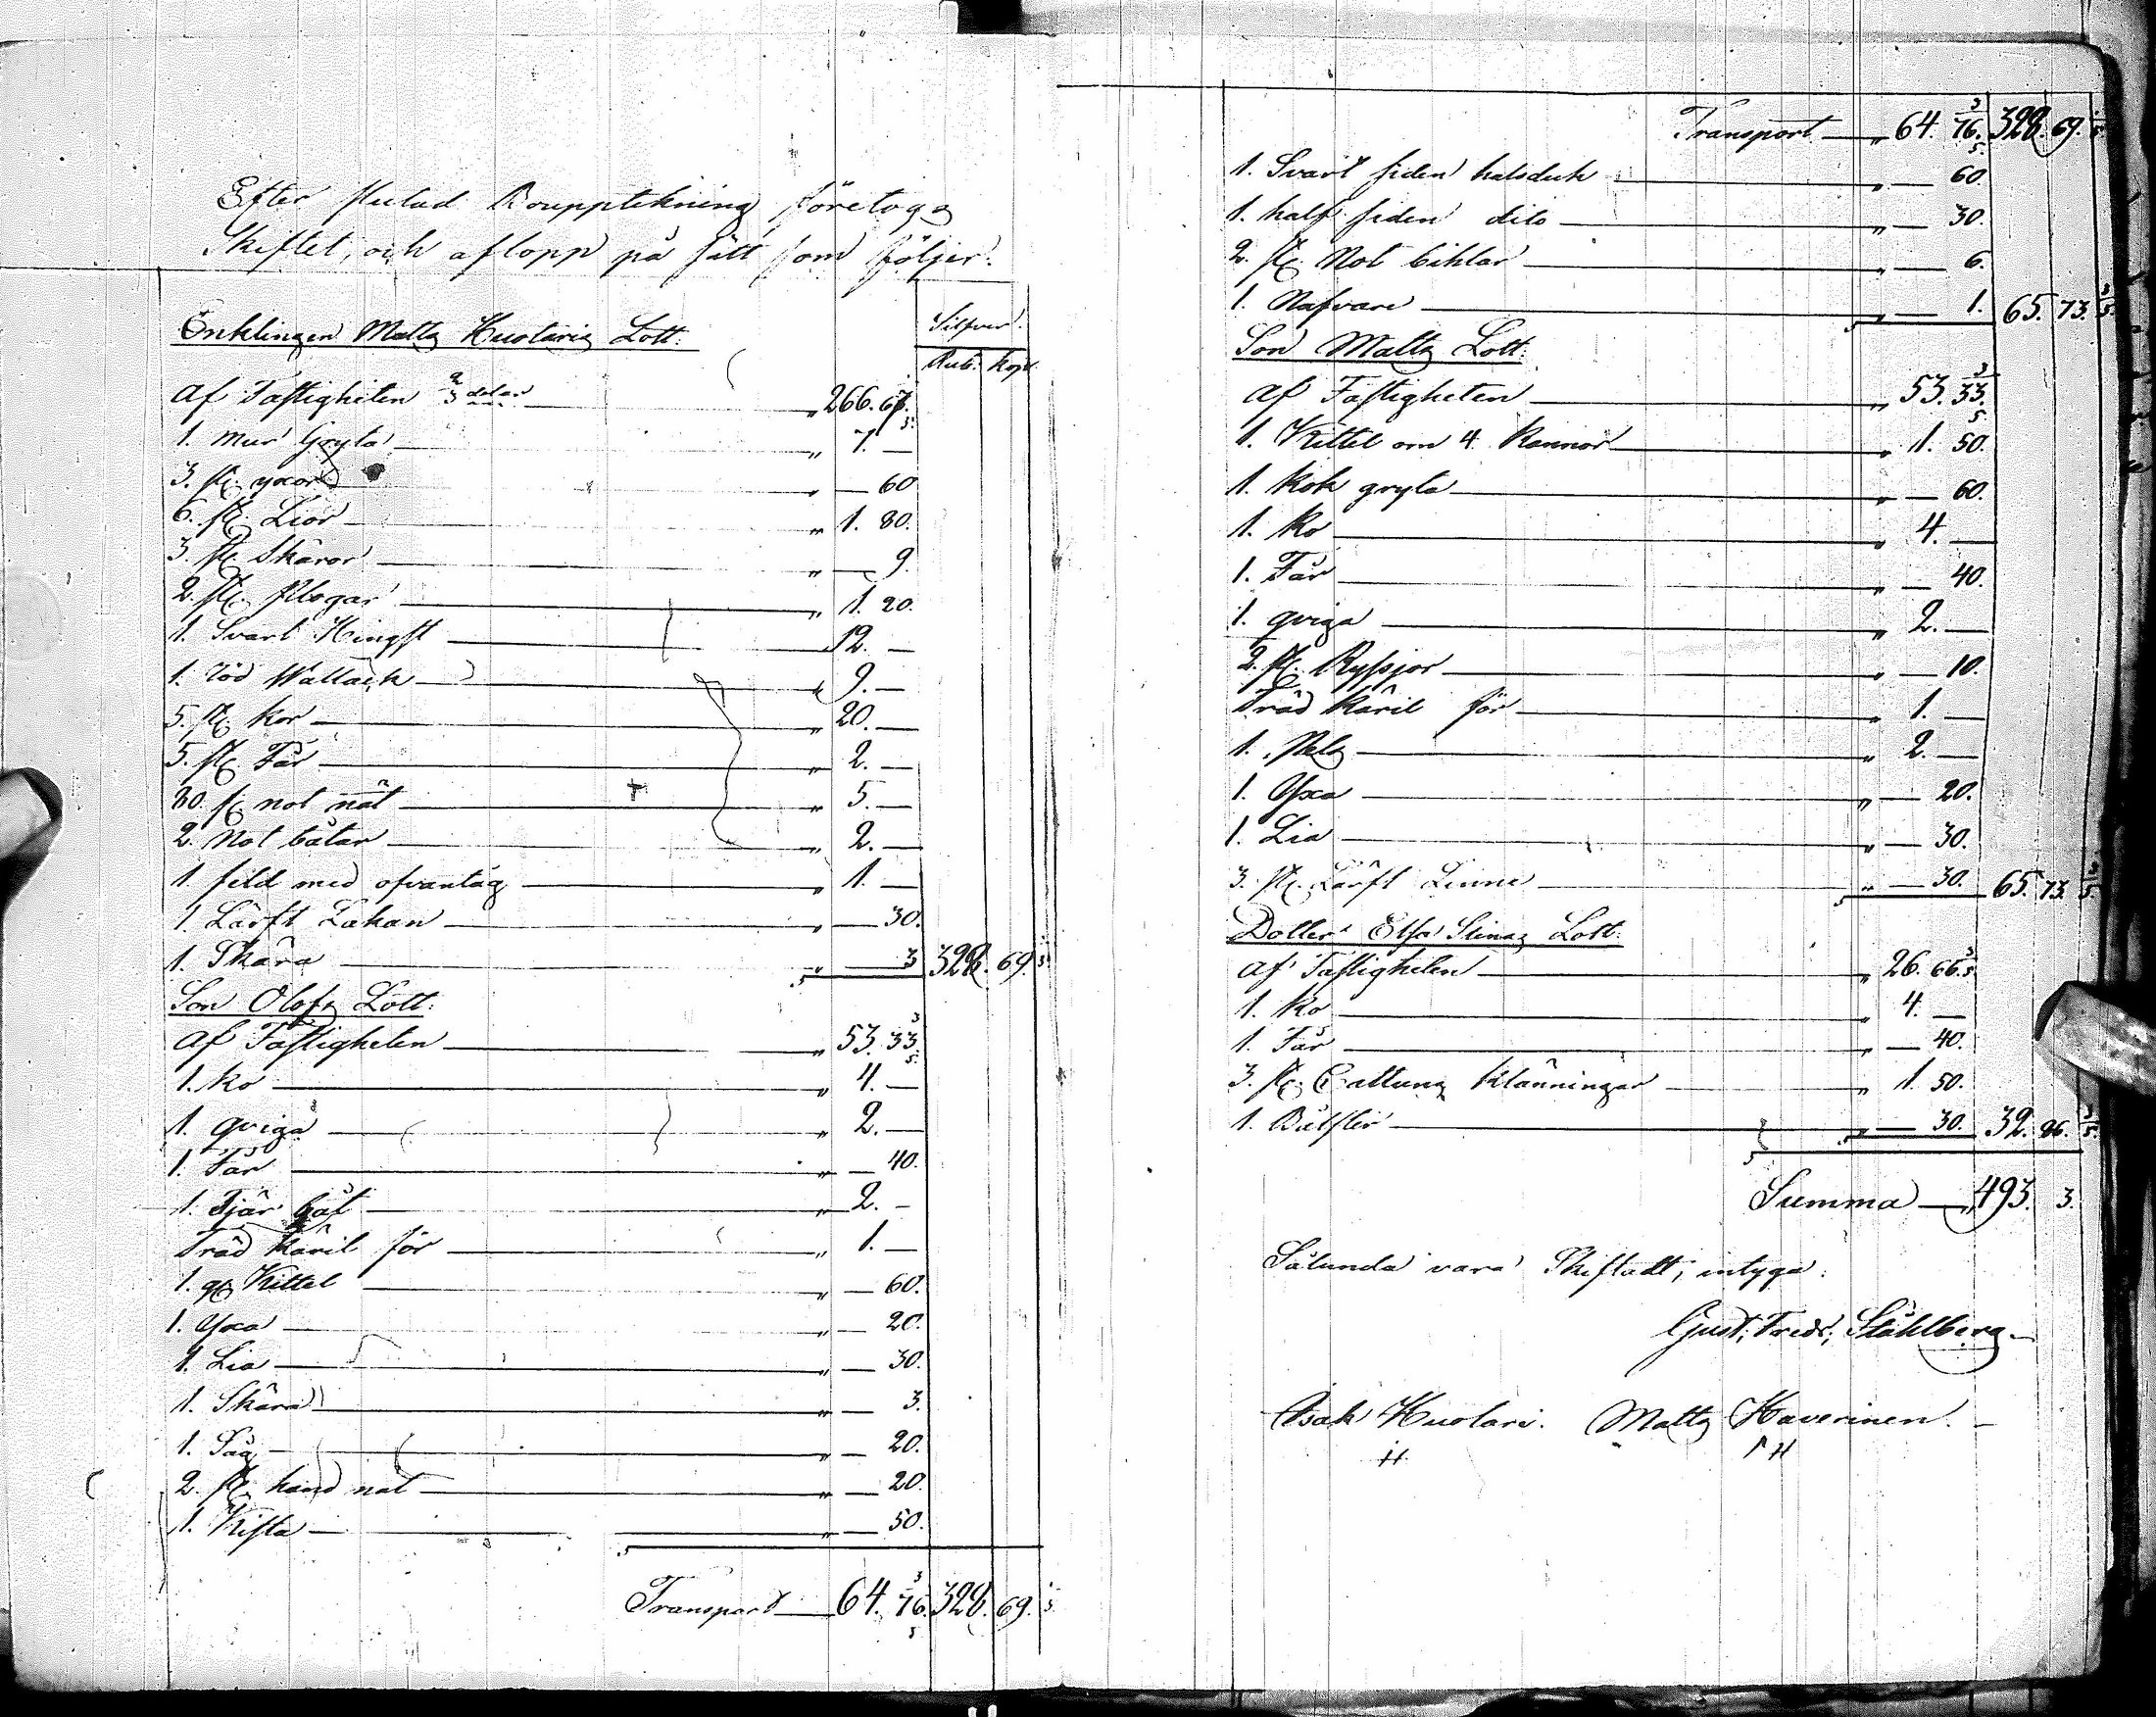 Efter slutad Boupptekning företogs
Skiftet, och aflopp på sätt som följer.
Silfver.
Enklingen Matts Huolaris Lott:
Rub. Kop.
Af Fastigheten 2/3 delar „ 266. 67.
1. mur Gryta „ 7. —
3. st. yxor „ — 60
6. st. Lior „ 1. 80.
3. st. Skäror „ — 9.
2. st. plogar „ 1. 20.
1. Svart Hingst 12. —
1. röd Wallack „ 9. —
5. st. kor „ 20. —
5. st. Får „ 2. —
30. st. not nät „ 5. —
2. Not båtar „ 2. —
1. fäld med ofvantåg „ 1. —
1. Lärft Lakan „ — 30.
1. Skära „ — 3 328. 69. 1/5
Son Olofs Lott:
Af Fastigheten „ 53. 33. 3/5
1. ko „ 4. —
1. qviga „ 2. —
1. Får „ — 40.
1. Tjär båt „ 2. —
Träd käril för „ 1. —
1. Kittel „ — 60.
1. Yxa „ — 20.
1. Lia „ — 30.
1. Skära „ — 3.
1. Såg „ — 20.
2. st. hand nät „ — 20.
1. Kista „ — 50.
Transport 64. 76. 3/5 328. 69. 1/5
Transport „ 64. 76. 3/5 328. 69. 1/5
1. Svart siden halsduk „ — 60.
1. half siden dito „ — 30.
2. st. Not biktar „ — 6.
1. Nafvare „ — 1. 65. 73. 3/5
Son Matts Lott:
Af Fastigheten „ 53. 33. 3/5
1. Kittel om 4. Kannor „ 1. 50.
1. kok gryta „ — 60.
1. Ko „ 4. —
1. Får „ — 40.
1. qviga „ 2. —
2. st. Ryssjor „ — 10.
Träd käril för „ 1. —
1. Pels „ 2. —
1. Yxa „ — 20.
1. Lia „ — 30.
3. st. Lärft Linne „ — 30. 65. 73. 3/5
Dotter Elsa Stinas Lott:
Af Fastigheten „ 26. 66. 3/5
1. Ko „ 4. —
1. Får „ — 40.
3. st. Cattuns klänningar „ 1. 50.
1. Bälster „ — 30. 32. 86. 3/5
Summa „ 493. 3.
Sålunda vara Skiftadt, intyga:
Gust: Fredr: Ståhlberg
Isak Huolari. Matts Haverinen.